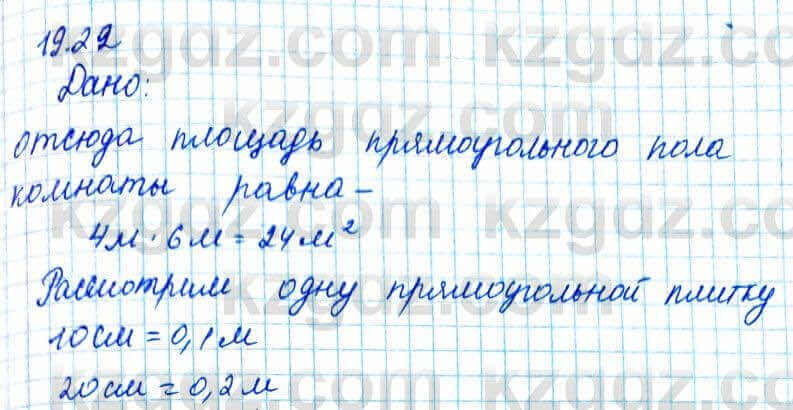 19.22
Дано:
отсюда площадь прямоугольного пола
комнаты равна –
4м · 6м = 24м²
Рассмотрим одну прямоугольной плитку
10см = 0,1м
20см = 0,2м
kzgdz.com kzgdz.com
kzgdz.com
kzgdz.com kzgdz.com
kzgdz.com